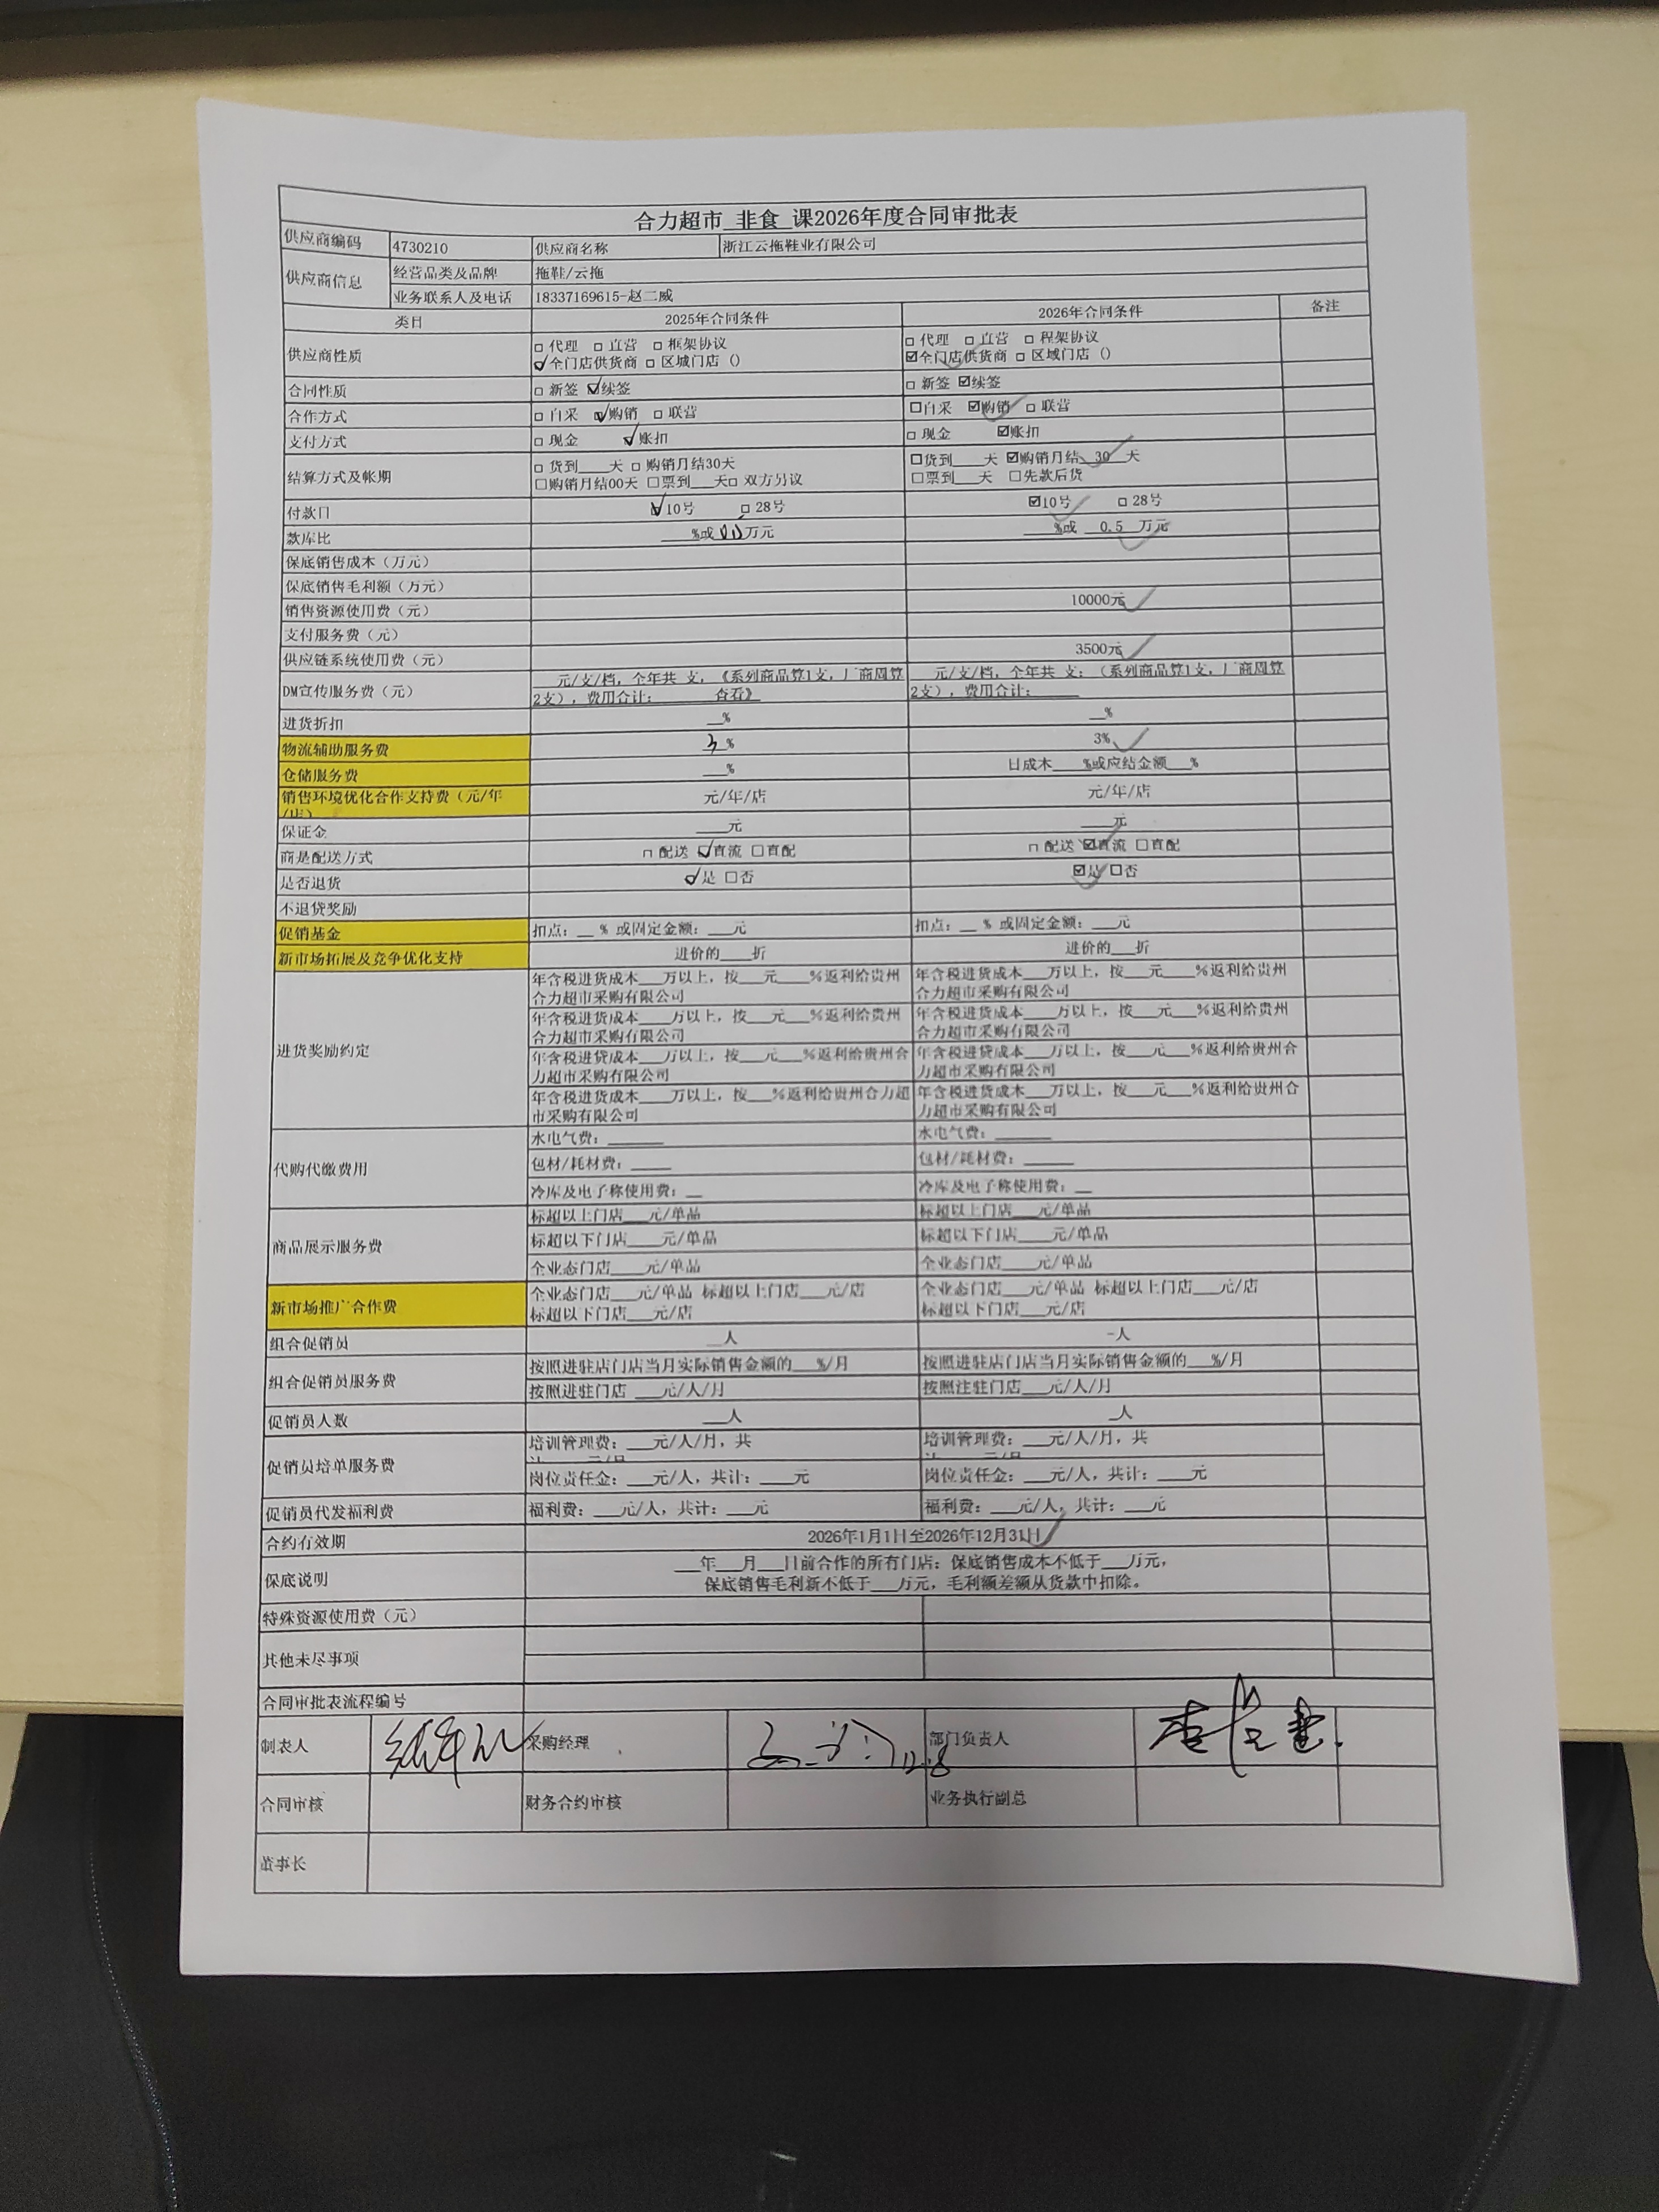 合力超市 非食 课2026年度合同审批表
供应商编码 4730210 供应商名称 浙江云拖鞋业有限公司
供应商信息 经营品类及品牌 拖鞋/云拖
业务联系人及电话 18337169615-赵二威
类目 2025年合同条件 2026年合同条件 备注
供应商性质 □ 代理 □ 直营 □ 框架协议 □ 代理 □ 直营 □ 程架协议
☑全门店供货商 □ 区域门店 () ☑全门店供货商 □ 区域门店 ()
合同性质 □ 新签 ☑续签 □ 新签 ☑续签
合作方式 □ 自采 ☑购销 □ 联营 □自采 ☑购销 □ 联营
支付方式 □ 现金 ☑账扣 □ 现金 ☑账扣
结算方式及帐期 □ 货到___天 □ 购销月结30天 □货到___天 ☑购销月结_30_天
□购销月结00天 □票到___天□ 双方另议 □票到___天 □先款后货
付款日 ☑10号 □ 28号 ☑10号 □ 28号
款库比 ___%或 万元 ___%或 0.5 万元
保底销售成本（万元）
保底销售毛利额（万元）
销售资源使用费（元） 10000元
支付服务费（元）
供应链系统使用费（元） 3500元
DM宣传服务费（元） ___元/支/档, 个年共 支, 《系列商品算1支, 厂商周算 ___元/支/档, 个年共 支; （系列商品算1支, 厂商周算
2支）, 费用合计:______查看》 2支）, 费用合计:______
进货折扣 __% __%
物流辅助服务费 3% 3%
仓储服务费 ___% 日成本___%或应结金额___%
销售环境优化合作支持费（元/年/店） 元/年/店 元/年/店
保证金 ____元 ____元
商是配送方式 □ 配送 ☑直流 □直配 □ 配送 ☑直流 □直配
是否退货 ☑是 □否 ☑是 □否
不退货奖励
促销基金 扣点: __ % 或固定金额: ___元 扣点: __ % 或固定金额: ___元
新市场拓展及竞争优化支持 进价的___折 进价的___折
进货奖励约定 年含税进货成本___万以上, 按___元____%返利给贵州 年含税进货成本___万以上, 按___元____%返利给贵州
合力超市采购有限公司 合力超市采购有限公司
年含税进货成本____万以上, 按___元___%返利给贵州 年含税进货成本___万以上, 按___元___%返利给贵州
合力超市采购有限公司 合力超市采购有限公司
年含税进货成本___万以上, 按___元___%返利给贵州合 年含税进货成本___万以上, 按___元___%返利给贵州合
力超市采购有限公司 力超市采购有限公司
年含税进货成本____万以上, 按___%返利给贵州合力超 年含税进货成本___万以上, 按___元___%返利给贵州合
市采购有限公司 力超市采购有限公司
代购代缴费用 水电气费: ______ 水电气费: ______
包材/耗材费: ____ 包材/耗材费: _____
冷库及电子称使用费: __ 冷库及电子称使用费: __
商品展示服务费 标超以上门店___元/单品 标超以上门店___元/单品
标超以下门店____元/单品 标超以下门店____元/单品
全业态门店____元/单品 全业态门店____元/单品
新市场推广合作费 全业态门店___元/单品 标超以上门店___元/店 全业态门店___元/单品 标超以上门店___元/店
标超以下门店___元/店 标超以下门店___元/店
组合促销员 __人 -人
组合促销员服务费 按照进驻店门店当月实际销售金额的___%/月 按照进驻店门店当月实际销售金额的___%/月
按照进驻门店 ___元/人/月 按照注驻门店___元/人/月
促销员人数 ___人 _人
促销员培单服务费 培训管理费: ___元/人/月, 共 培训管理费: ___元/人/月, 共
岗位责任金: ___元/人, 共计: ____元 岗位责任金: ___元/人, 共计: ___元
促销员代发福利费 福利费: ___元/人, 共计: ___元 福利费: ___元/人, 共计: ___元
合约有效期 2026年1月1日至2026年12月31日
保底说明 ___年___月___日前合作的所有门店: 保底销售成本不低于___万元,
保底销售毛利新不低于___万元, 毛利额差额从货款中扣除。
特殊资源使用费（元）
其他未尽事项
合同审批表流程编号
制表人 采购经理 12.8 部门负责人
合同审核 财务合约审核 业务执行副总
董事长